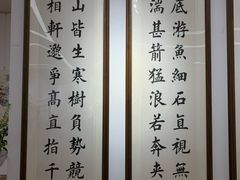 底游魚細石直視無
湍甚箭猛浪若奔夾
山皆生寒樹負勢競
相軒邈爭高直指千